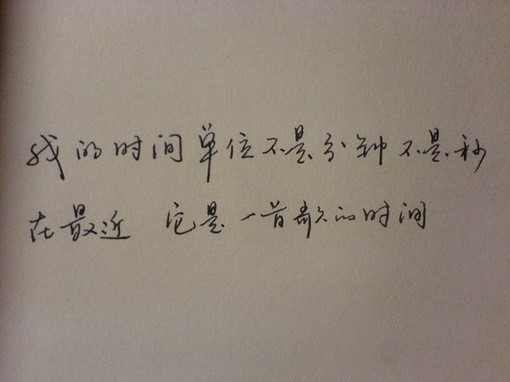 我的时间单位不是分钟不是秒
在最近 它是一首歌的时间